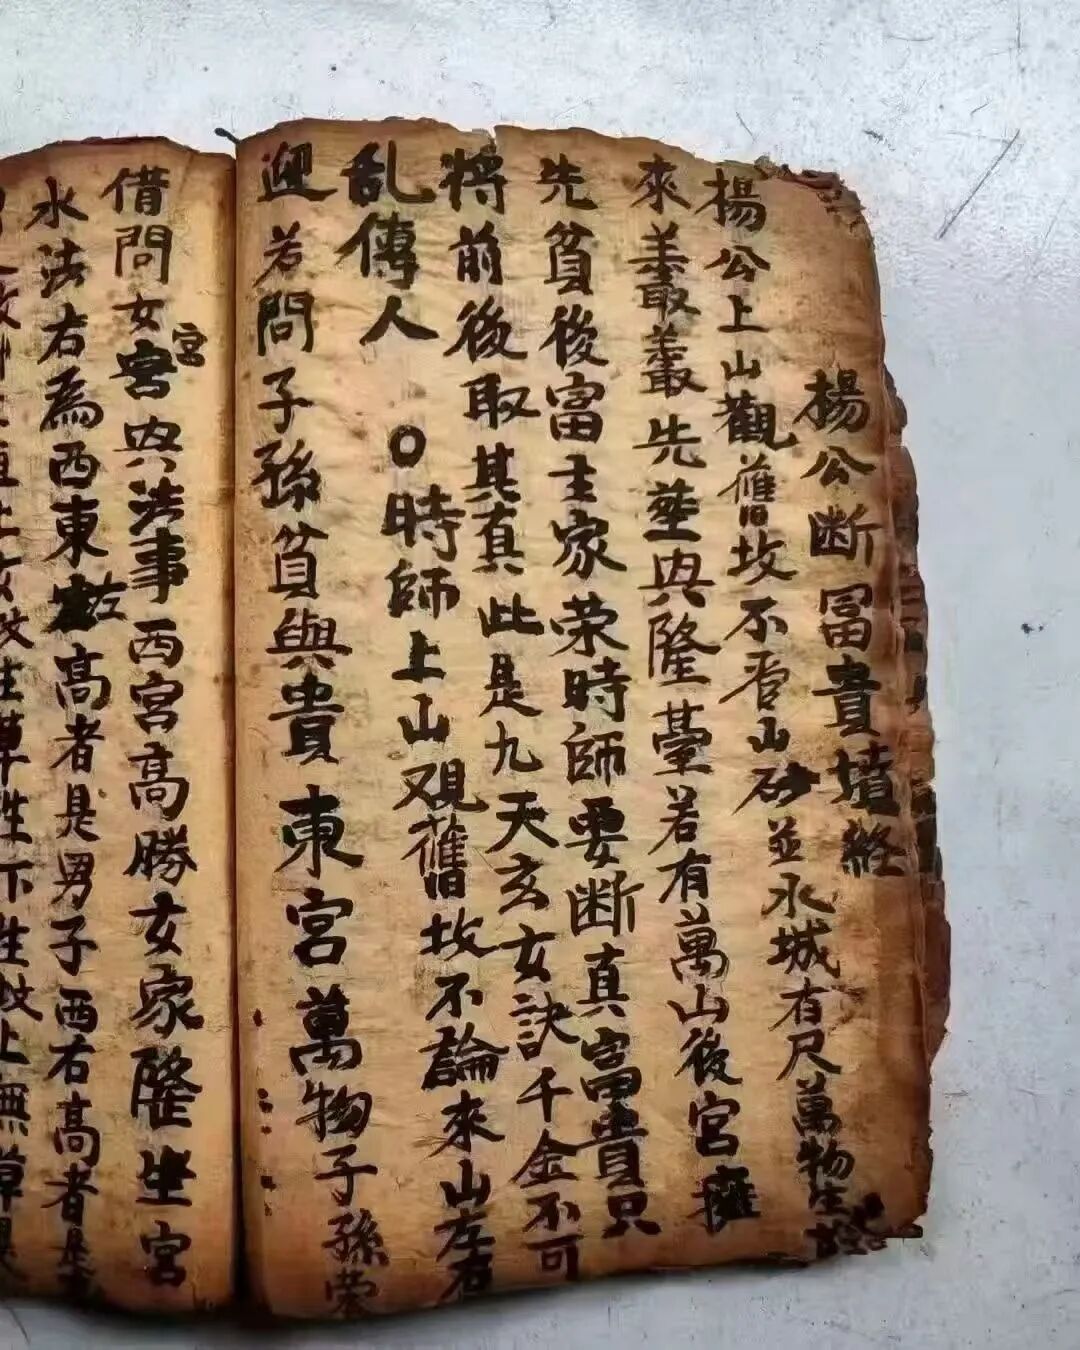 楊公断冨貴墳経
楊公上山觀舊坟不看山砂並水城有尺萬物生
來叢叢先塟興隆臺若有萬山後宮
先貧後富主家荣時師要断真富貴只
将前後取其真此是九天玄女訣千金不可
乱傳人〇時師上山覌舊坟不論來山左右
迎若問子孫貧與貴東宮萬物子孫荣
借問女宮與法事西宮高勝女家隆坐宮
水法右為西東左高者是男子西右高者是